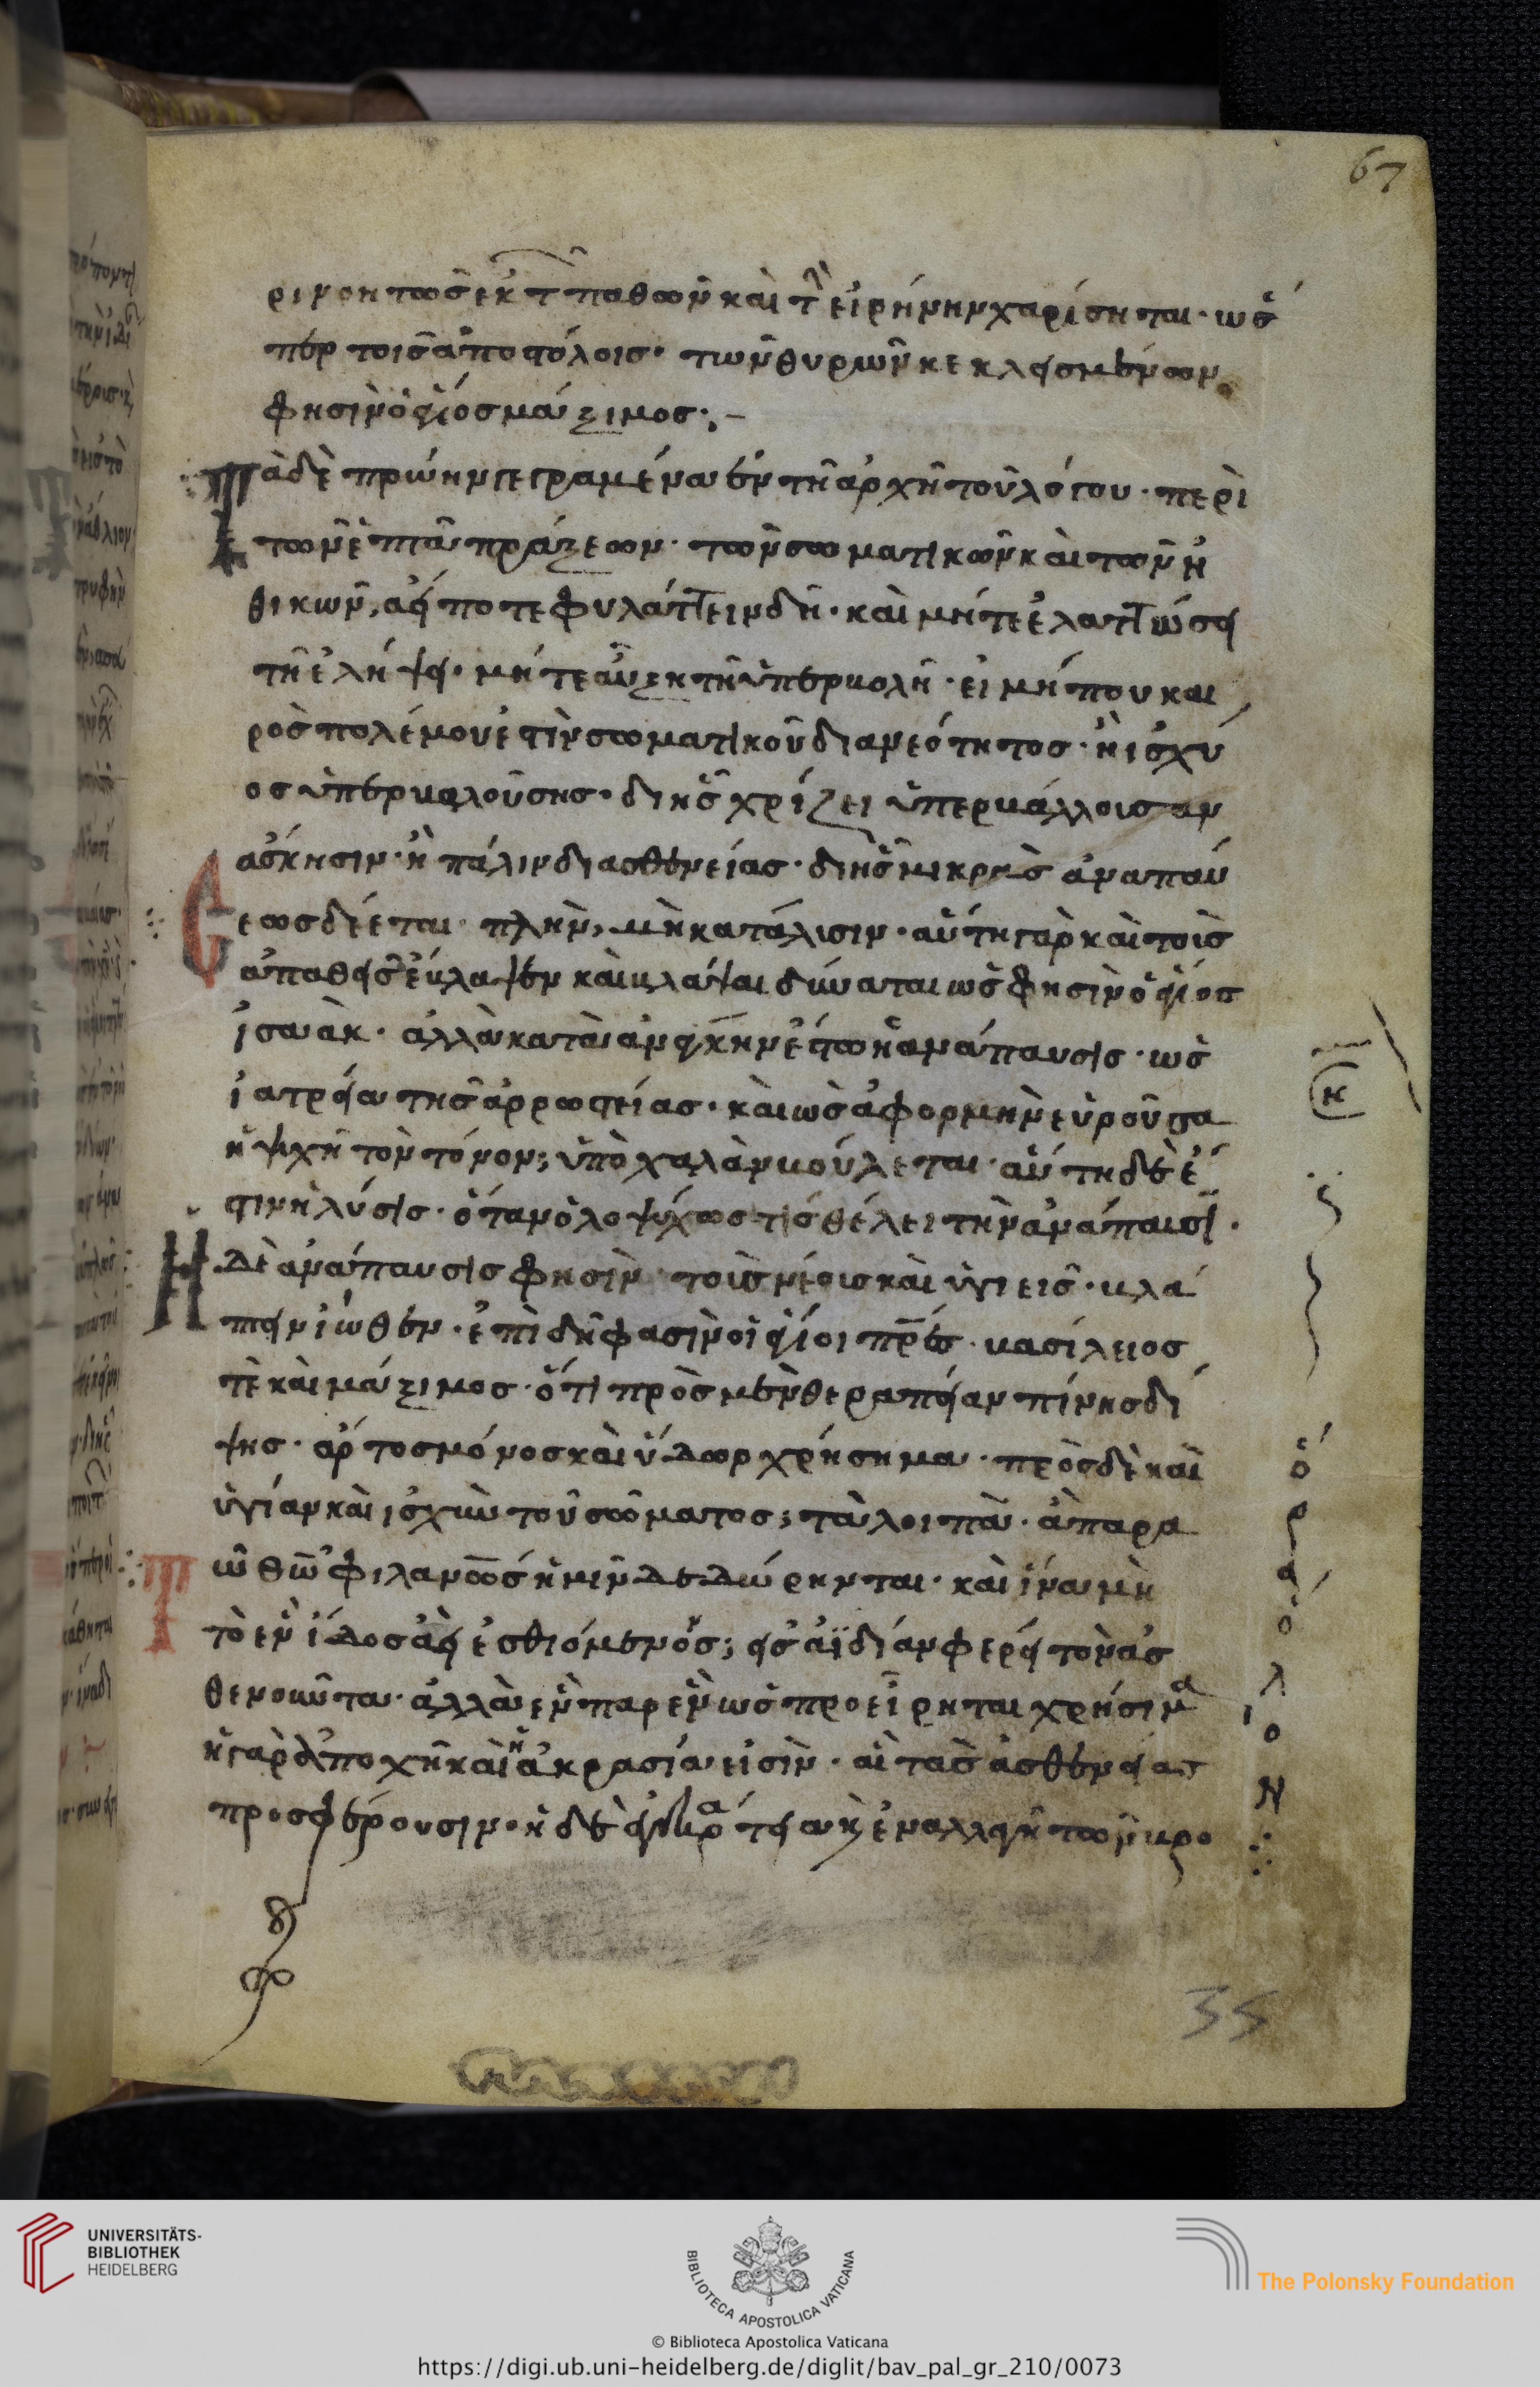 67
ρινοητῶς ἐκ τ παθῶν καὶ τ εἰρήνην χαρίσηται· ὡς
περ τοῖς ἀποστόλοις· τῶν θυρῶν κεκλεισμένων
φησὶν ὁ ἅγιος μάξιμος:–
Τὰ δὲ πρώην γεγραμένα ἐν τῆ ἀρχῆ τοῦ λόγου· περὶ
τῶν ἑπτὰ πράξεων· τῶν σωματικῶν καὶ τῶν ἠ
θικῶν, ἀεί ποτε φυλάττειν δεῖ· καὶ μήτε ἐλαττώσει
τῆ ἐλήψει· μήτε αὔξη τῆ ὑπερβολῆ· εἰ μή που και
ρὸς πολέμου ἐστὶν σωματικοῦ διανεότητος· ἢ ἰσχύ
ος ὑπερβαλούσης· δι ῆς χρίζει ὑπερβάλλουσαν
ἀσκησιν· ἢ πάλιν δι ασθενείας· δι ῆς μικρᾶς ἀναπαύ
εως δέεται· πλὴν, μὴ κατάλισιν· αὕτη γὰρ καὶ τοῖς
ἀπαθεῖς ἔβλαψεν καὶ βλάψαι δύναται ὡς φησὶν ὁ ἅγιος
ἰσαὰκ· ἀλλὰ κατὰ ἀναγκην ἔστω ἡ ἀνάπαυσις· ὡς
ἰατρεία τῆς ἀρρωστείας· καὶ ὡς ἀφορμὴν εὑροῦσα
ἡ ψυχὴ τὸν τόνον; ὑποχαλὰν βούλεται· αὕτη δέ ἐ
στιν ἡ λύσις· ὅταν ὁλοψύχως τίς θέλει τὴν ἀνάπαυσι·
Ἡ δὲ ἀνάπαυσις φησὶν· τοῖς νέοις καὶ ὑγιεῖς· βλά
πειν ἰώθεν· ἐπὶ δὴ φασὶν οἱ ἅγιοι πρες· βασίλειος
τὲ καὶ μάξιμος· ὅτι πρὸς μὲν θεραπείαν πίνης δί
ψης· ἄρτος μόνος καὶ ὕδωρ χρήσημα· πρὸς δὲ καὶ
ὑγίαν καὶ ἰσχὺν τοῦ σώματος; τὰ λοιπὰ· ἃ παρα
Τῶ θω φιλανοσ ἡμῖν δεδώρηνται· καὶ ἵνα μὴ
τὸ ἓν ἴδος ἀεὶ ἐσθιόμενος; εἰς ἀϊδίαν φερει τὸν ἀσ
θενοῦντα· ἀλλὰ ἓν παρ ἓν ὡς προείρηται χρήσιμα
ἡ γὰρ ἀποχὴ καὶ ἡ ἀκρασία εἰσὶν· αἱ τὰς ἀσθενείας
προσφέρουσιν· ἡ δὲ ἐγκράτεια κ ἐναλλαγὴ τῶν βρο
κ
ὅ
ρ
α
ὁ
λ
ι ο
Ν
35
UNIVERSITÄTS-
BIBLIOTHEK
HEIDELBERG
BIBLIOTECA APOSTOLICA VATICANA
The Polonsky Foundation
© Biblioteca Apostolica Vaticana
https://digi.ub.uni-heidelberg.de/diglit/bav_pal_gr_210/0073